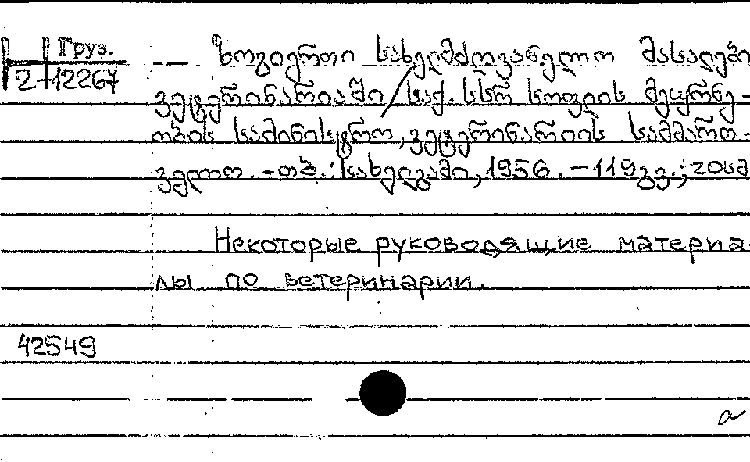 Груз.
2-12267
— ზოგიერთი სახელმძღვანელო მასალები
ვეტერინარიაში / საქ. სსრ სოფლის მეურნე-
ობის სამინისტრო, ვეტერინარიის სამმართ-
ველო. - თბ.: სახელგამი, 1956. - 119 გვ.; 20 სმ
Некоторые руководящие материа-
лы по ветеринарии.
42549